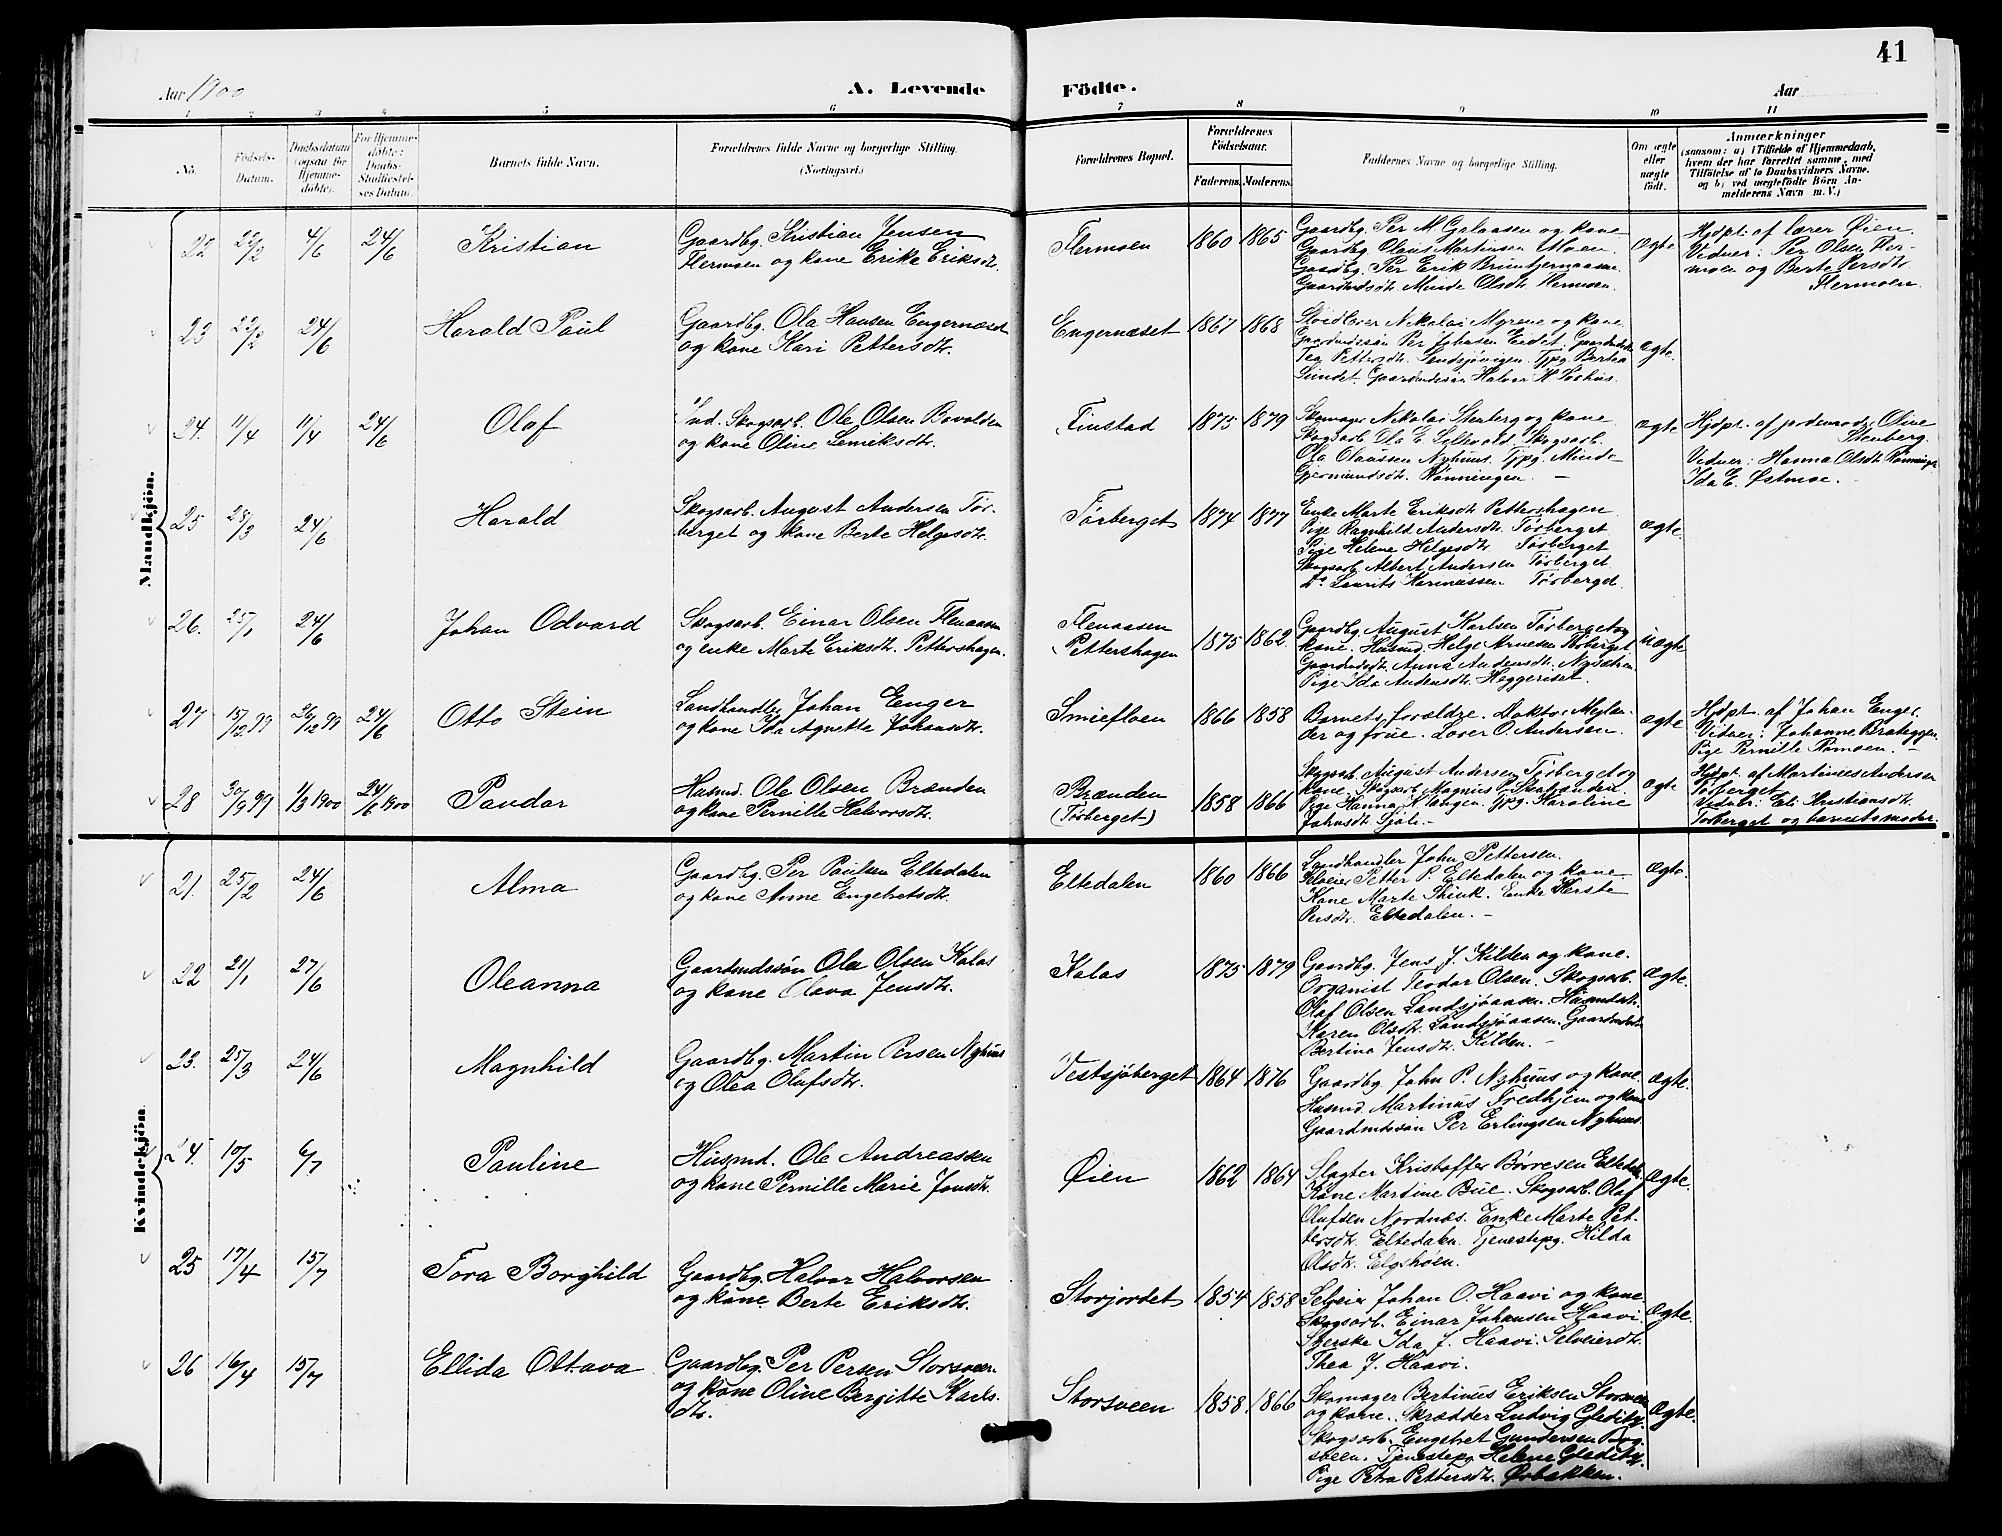 41
Aar 1900
A. Levende
Födte.
Aar
1 2 3 4 5 6 7 8 9 10 11
No.
Födsels-
Datum.
Daabsdatum
(ogsaa for
Hjemme-
döbte).
For Hjemme-
döbte:
Daabs-
Stadfæstel-
ses Datum.
Barnets fulde Navn.
Forældrenes fulde Navne og borgerlige Stilling.
(Næringsvei.)
Forældrenes Bopæl.
Forældrenes
Födselsaar.
Faderens. Moderens.
Faddernes Navne og borgerlige Stilling.
Om ægte
eller
uægte
født.
Anmærkninger
(saasom: a) i Tilfælde af Hjemmedaab,
hvem der har forrettet samme, med
Tilføielse af to Daabsvidners Navne,
og b) ved uægtefødte Börn An-
melderens Navn m. V.)
Mandkjön.
22 22/2 4/6 24/6
Kristian
Gaardbg. Kristian Jensen
Flermoen og kone Erika Eriksdtr.
Flermoen
1860 1865
Gaardbg. Per M. Galaasen og kone
Gaardbg. Olaus Martinsen Moen
Gaardbg. Per Erik
Gaardmdsdtr. Minda Olsdtr. Flermoen.
ægte
Hjdpt. af lærer Øien.
Vidner: Per Olsen Fler-
moen og Berte Persdtr.
Flermoen.
23 22/2 24/6
Harald Paul
Gaardbg. Ola Hansen Engernæset
og kone Kari Pettersdtr.
Engernæset
1867 1868
Nikolai Myrene og kone
Gaardmdssøn Per Johasen Eidet.
Tea Pettersdtr. Tjpg. Bertea
Sundet. Gaardmdssøn Halvor H.
ægte.
24. 11/4 11/4 24/6
Olaf
Ind. Skogsarb. Ole Olsen
og kone Oline
Finstad
1875 1879
Skomager Nikolai Stenberg og kone
Skogsarb. Ola E. Skogsarb.
Ola Olaussen Nyhuus. Tjpg. Minda
Gjermundsdtr. Rønningen. –
ægte
Hjdpt. af jordemoder Oline
Stenberg.
Vidner: Hanna Olsdtr. Rønningen
Ida E. Østmoe. –
25 28/3 24/6
Harald
Skogsarb. August Andersen Tør-
berget og kone Berte Helgesdtr.
Tørberget
1874 1877
Enke Marte Eriksdtr. Pettershagen
Pige Ragnhild Andersdtr. Tørberget
Pige Helene Helgesdtr. Tørberget
Skogsarb. Albert Andersen Tørberget
Do Laurits Hermansen Tørberget.
ægte.
26. 25/1 24/6
Johan Odvard
Skogsarb. Einar Olsen Flenaasen
og enke Marte Eriksdtr. Pettershagen.
Flenaasen
Pettershagen
1875 1862.
Gaardbg. August Karlsen Tørberget og
kone. Husmd. Helge Arnesen Tørberget
Gaardmdsdtr. Anna Andersdtr. Nysætren
Pige Ida Andersdtr. Heggeriset.
uægte
27 15/12 99 26/12 99 24/6
Otto Stein
Landhandler Johan Enger
og kone Ida Agnette Johansdtr.
Smiefloen
1866 1858
Barnets forældre. Doktor Mylen-
der og frue. Lærer O. Andersen.
ægte
Hjdpt. af Johan Enger.
Vidner: Johanne
Pige Pernille Romoen. –
28 30/9 99 1/3 1900 24/6 1900
Pandor
Husmd. Ole Olsen Brænden
og kone Pernille Halvorsdtr.
Brænden
(Tørberget)
1858 1866
Skogsarb. August Andersen Tørberget og
kone. Skogsarb. Magnus P.
Pige Hanna H. Tjpg. Karoline
Johnsdtr. Sjøli. –
ægte
Hjdpt. af Martinius Andersen
Tørberget
Vidner: Eli Kristiansdtr.
Tørberget og barnets moder.
Kvindekjön
21. 25/2 24/6
Alma
Gaardbg. Per Paulsen Eltedalen
og kone Anne Engebretsdtr.
Eltedalen
1860 1866
Landhandler John Pettersen.
Selveier Petter P. Eltedalen og kone
Kone Marte Enke Kerste
Persdtr. Eltedalen. –
ægte.
22 21/1 27/6
Oleanna
Gaardmdssøn Ola Olsen Kalas
og kone Olava Jensdtr.
Kalas
1875 1879
Gaardbg. Jens J. Kilden og kone.
Organist Teodor Olsen. Skogsarb.
Olaf Olsen Landsjøaasen. Husmdsdtr.
Karen Olsdtr. Landsjøaasen. Gaardmdsdtr.
Bertina Jensdtr. Kilden. –
ægte.
23. 25/3 24/6
Magnhild
Gaardbg. Martin Persen Nyhuus
og Olea Olafsdtr.
Vestsjøberget
1864 1876
Gaardbg. John P. Nyhuus og kone.
Husmd. Martinus Fredhjem og kone
Gaardmdssøn Per Erlingsen Nyhuus.
ægte.
24. 10/5 6/7
Pauline
Husmd. Ole Andreassen
og kone Pernille Marie Jonsdtr.
Øien
1862 1864
Slagter Kristoffer Børresen Eltedal.
Kone Martine Bue. Skogsarb. Olaf
Olafsen Nordnæs. Enke Marte Pet-
tersdtr. Eltedalen. Tjenestepg. Hilda
Olsdtr. Elgshøen.
ægte.
25 17/4 15/7
Tora Borghild
Gaardbg. Halvor Halvorsen
og kone Berte Eriksdtr.
Storjordet
1854 1858
Selveier Johan O. Haavi og kone
Skogsarb. Einar Johansen Haavi.
Ida J. Haavi. Selveierdtr.
Thea J. Haavi.
ægte.
26 16/4 15/7
Ellida Ottava
Gaardbg. Per Persen Storsveen
og kone Oline Bergitte Karls-
dtr.
Storsveen
1858 1866
Skomager Bertinus Eriksen Storsveen
og kone. Skrædder Ludvig
Skogsarb. Engebret Gundersen
Tjenestepg. Helene
Pige Petra Pettersdtr. Øvbakken.
ægte.